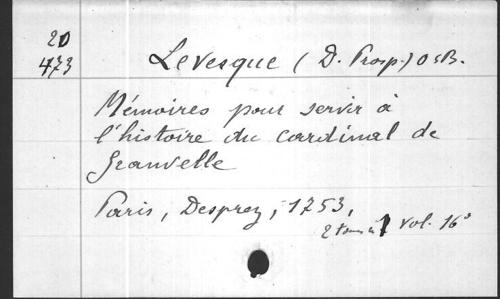 20
473
Levesque (D. Prosp.) OSB.
Mémoires pour servir à
l'histoire du cardinal de
Granvelle
Paris, Desprez, 1753,
2 tom. 1 vol. 16°